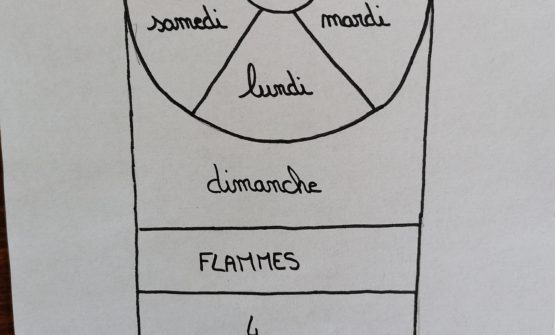 samedi mardi
lundi
dimanche
FLAMMES
4